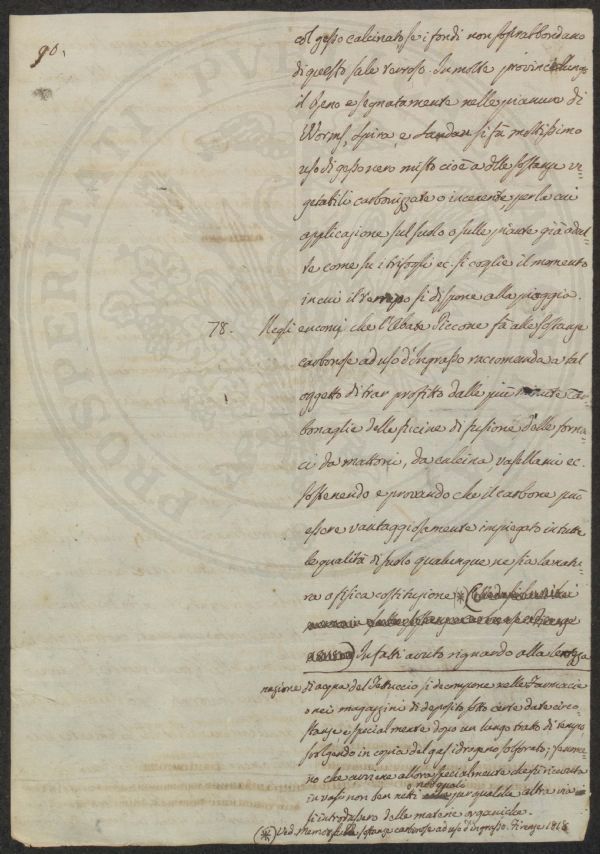 90.
col gesso calcinato, se i fondi non soprabbondano
di questo sale terroso. In molte provincie lungo
il Reno e segnatamente nelle pianure di
Worms, Spira, e Landau si fà moltissimo
uso di gesso nero misto cioè a delle sostanze ve-
getabili carbonizzate o incenerite, per la cui
applicazione sul suolo o sulle piante già adul-
te come su i trifogli ec. si coglie il momento
in cui il tempo si dispone alla pioggia.
78. Negli encomj che l'Abate Piccone fà alle sostanze
carbonose ad uso d'ingrasso raccomanda a tal
oggetto di trar profitto dalle più minute car-
bonaglie delle fucine di fusione delle forna-
ci da mattoni, da calcina vasellami ec.
sostenendo e provando che il carbone può
essere vantaggiosamente impiegato in tutte
le qualità di suolo qualunque ne sia la natu-
ra o fisica costituzione (*)
Infatti avuto riguardo alla
nazione di acqua del Tettuccio si decompone nelle Farmacie
o nei magazzini di deposito sotto certe date circo-
stanze e specialmente dopo un lungo tratto di tempo
svolgendo in copia del gas idrogeno solforato; fenome-
no che avviene allora specialmente che sti rinvasta
in vasi non ben netti o nei quali per qualche altra via
si introdussero delle materie organiche.
(*) Ved. Memor. sulle sostanze carbonose ad uso d'ingrasso. Firenze 1818
PROSPERITATI PUBLICAE